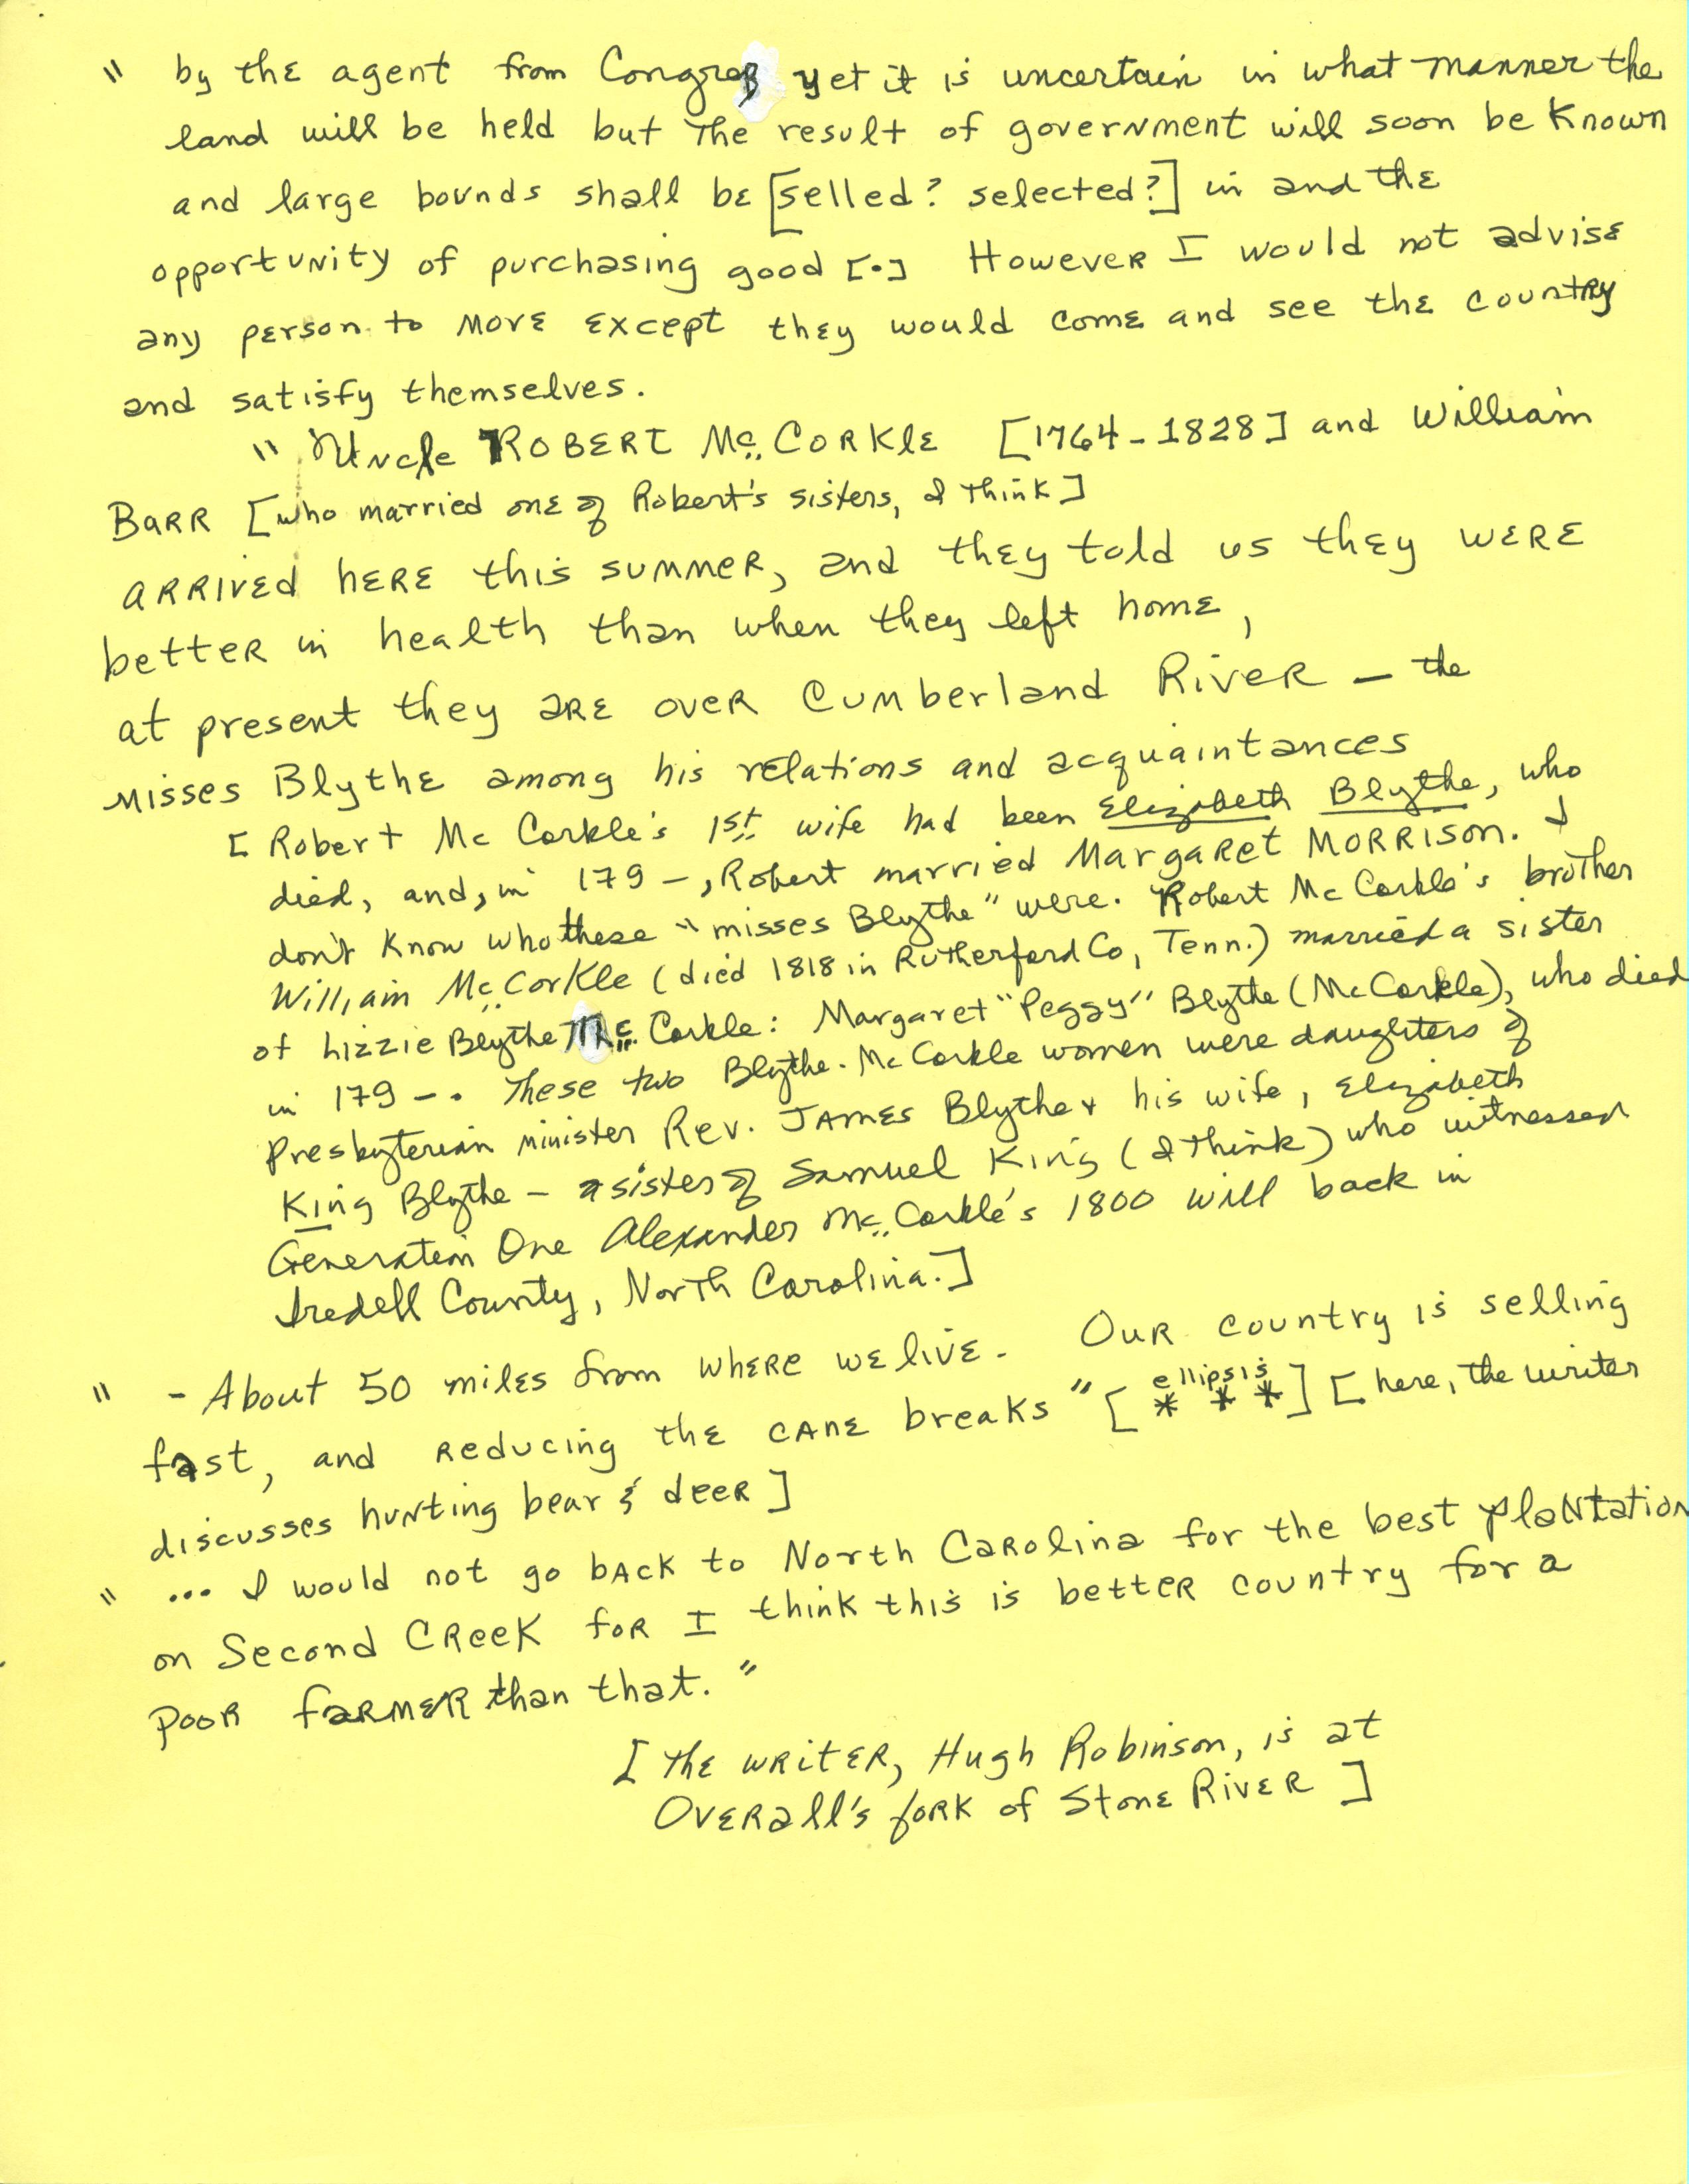 " by the agent from Congreß yet it is uncertain in what manner the
land will be held but the result of government will soon be known
and large bounds shall be [selled? selected?] in and the
opportunity of purchasing good [.] However I would not advise
any person to move except they would come and see the country
and satisfy themselves.
" Uncle ROBERT Mc CORKlE [1764-1828] and William
BaRR [who married one of Robert's sisters, I think]
arrived here this summer, and they told us they were
better in health than when they left home,
at present they are over Cumberland River – the
misses Blythe among his relations and acquaintances
[Robert Mc Corkle's 1st wife had been Elizabeth Blythe, who
died, and, in 179–, Robert married Margaret Morrison. I
don't know who these "misses Blythe" were. Robert Mc Corkle's brother
William Mc Corkle (died 1818 in Rutherford Co, Tenn.) married a sister
of Lizzie Blythe Mc Corkle: Margaret "Peggy" Blythe (Mc Corkle), who died
in 179–. These two Blythe-McCorkle women were daughters of
Presbyterian minister Rev. James Blythe & his wife, Elizabeth
King Blythe – a sister of Samuel King (I think) who witnessed
Generation One Alexander Mc Corkle's 1800 will back in
Iredell County, North Carolina.]
" - About 50 miles from where we live. Our country is selling
fast, and reducing the cane breaks " [ellipsis * * *] [here, the writer
discusses hunting bear & deer]
" ... I would not go back to North Carolina for the best plantation
on Second Creek for I think this is better country for a
poor farmer than that. "
[The writer, Hugh Robinson, is at
Overall's fork of Stone River]